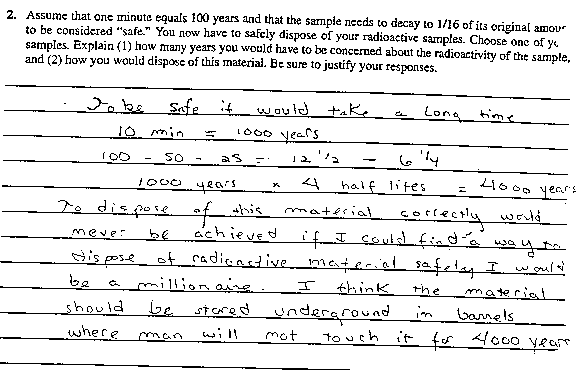 2. Assume that one minute equals 100 years and that the sample needs to decay to 1/16 of its original amour
to be considered "safe." You now have to safely dispose of your radioactive samples. Choose one of yo
samples. Explain (1) how many years you would have to be concerned about the radioactivity of the sample,
and (2) how you would dispose of this material. Be sure to justify your responses.
To be safe it would take a long time
10 min = 1000 years
100 - 50 - 25 - 12 1/2 - 6 1/4
1000 years x 4 half lifes = 4000 years
To dispose of this material correctly would
never be achieved if I could find a way to
dispose of radioactive material safelay I would
be a millionaire. I think the material
should be stored underground in barrels
where man will not touch it for 4000 years